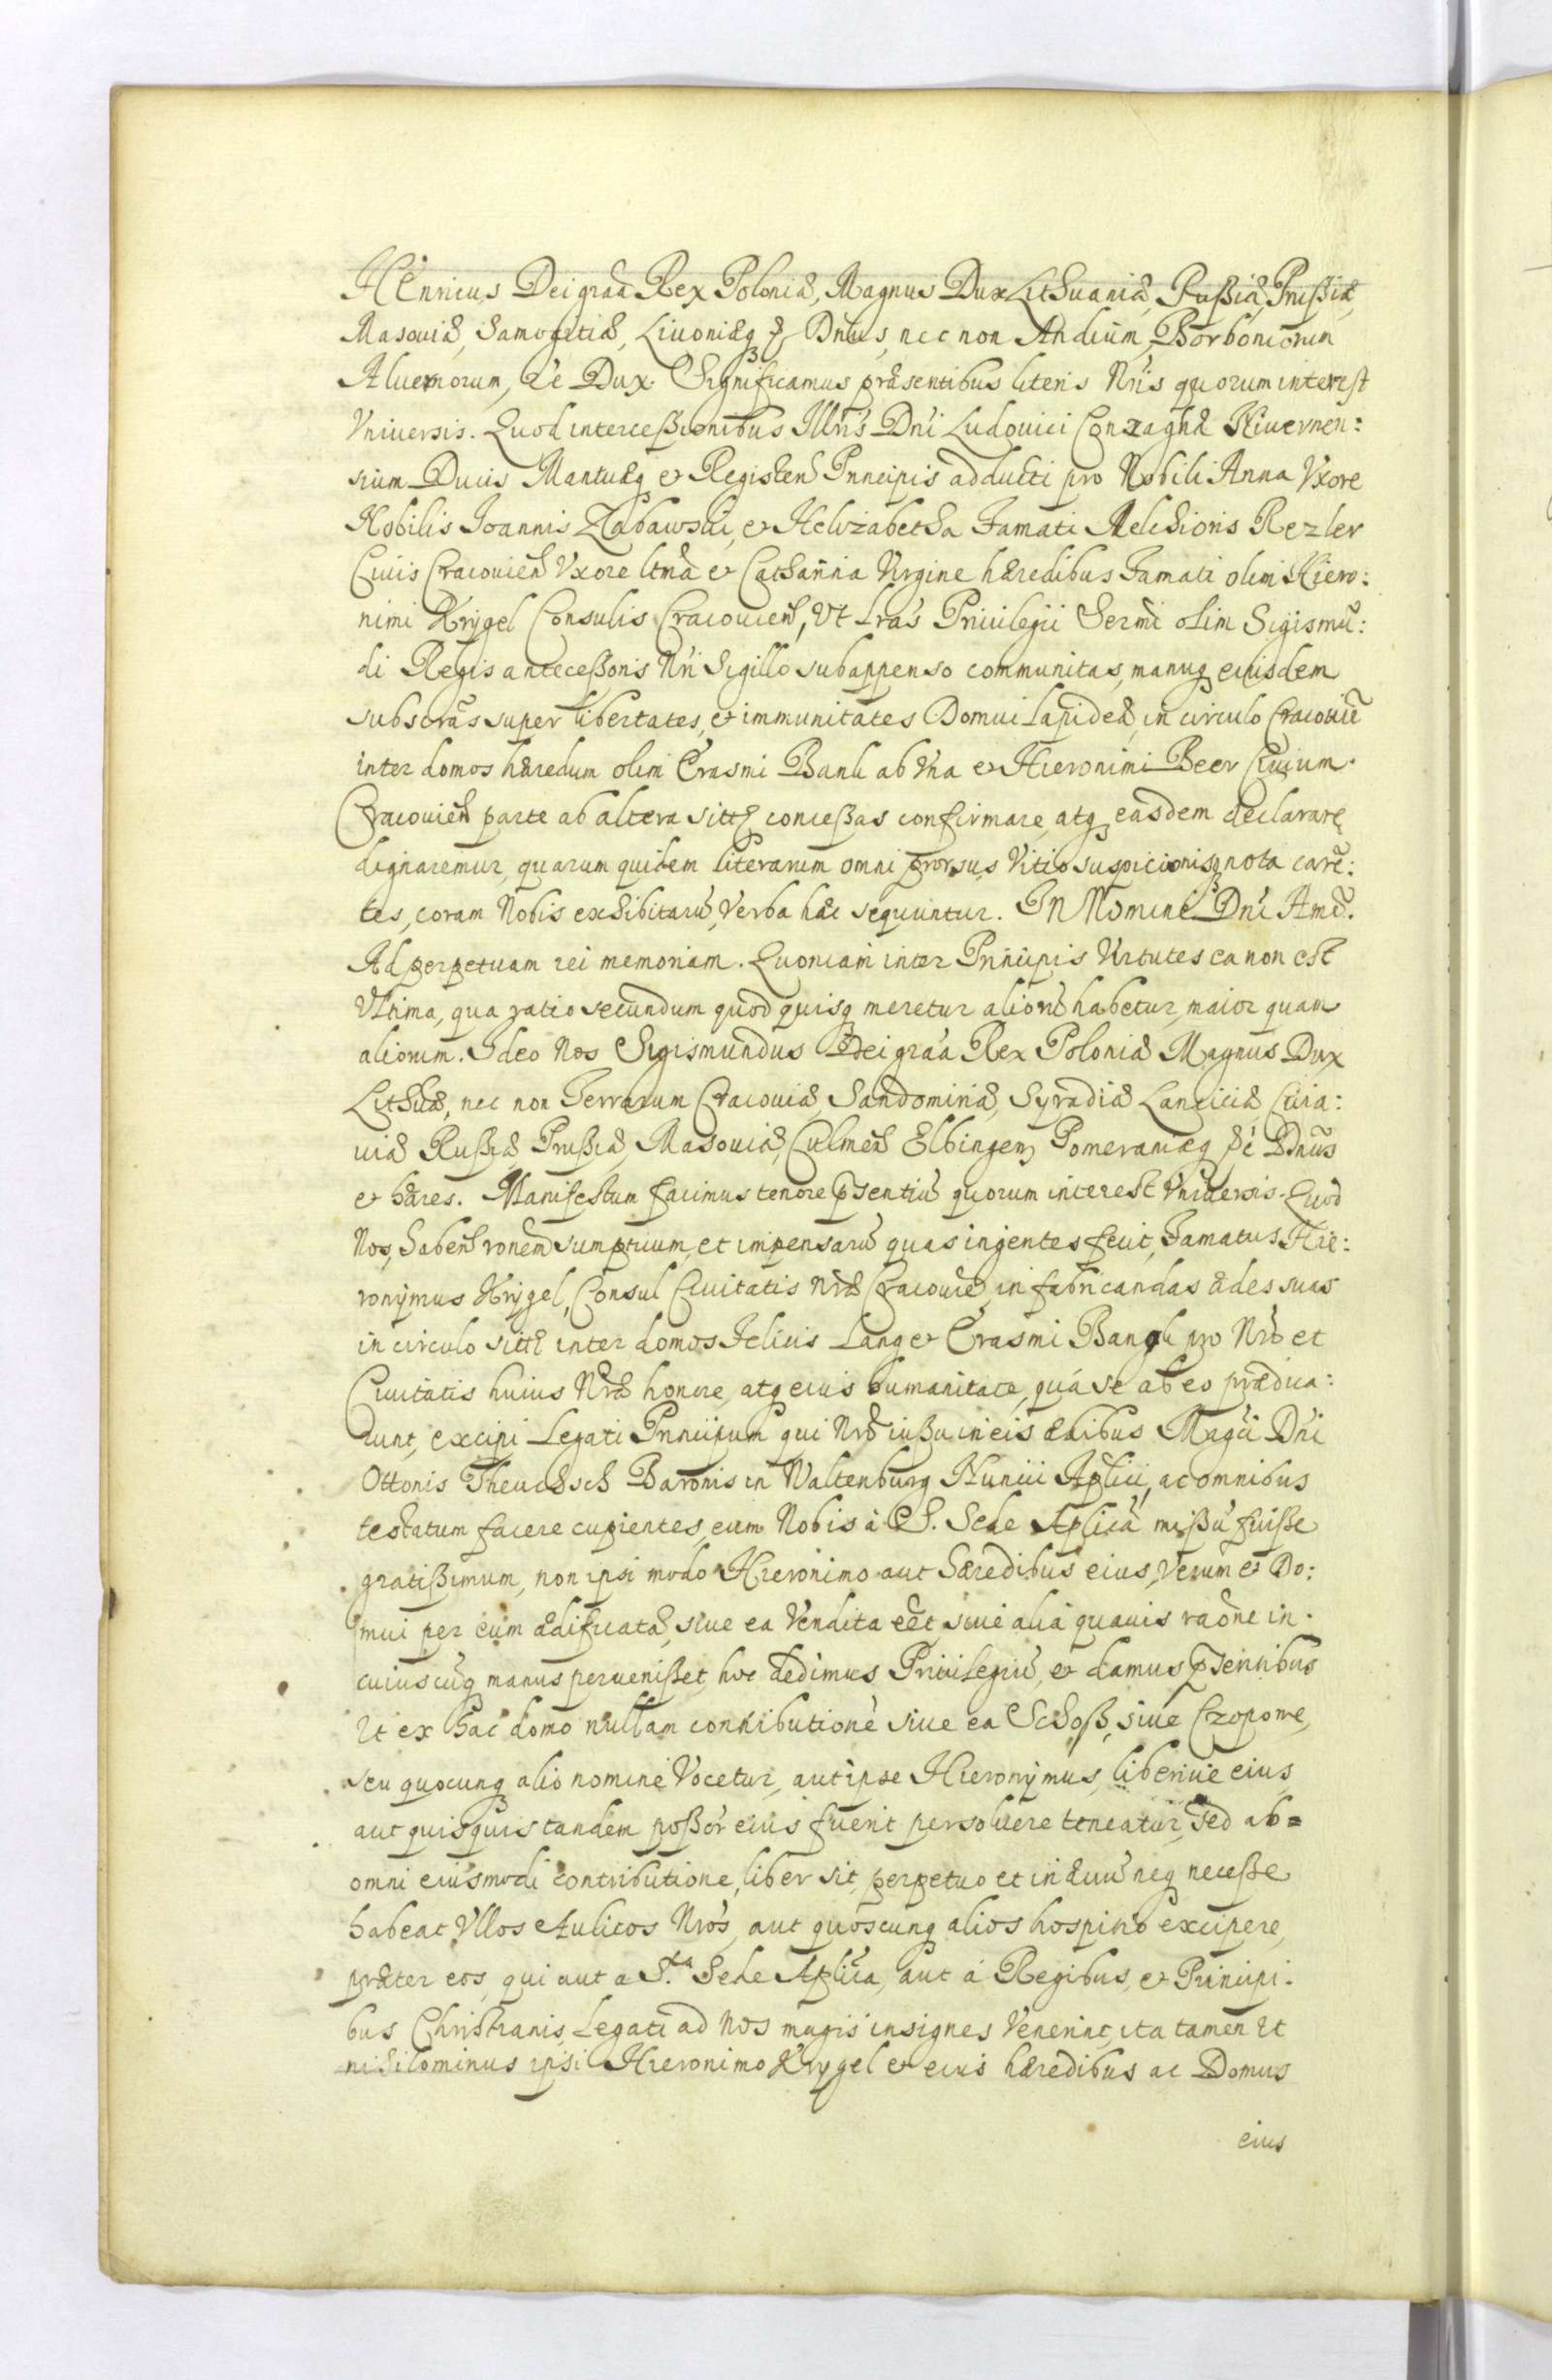 HEnricus Dei gr̃aa Rex Poloniæ, Magnus Dux Lithuaniæ, Rußiæ, Prußiæ,
Masouiæ, Samogitiæ, Liuoniæq₃ Dnus, nec non Andium, Borboniorum
Aluernorum, &c Dux. Significamus præsentibus literis Nr̃is quorum interest
Vniuersis. Quod intercessionibus Illris Dni Ludouici Conzaghæ Niuernen:
sium Ducis Mantuæq₃ & Principis adducti pro Nobili Anna Vxore
Nobilis Ioannis Zabawski, & Helizabetha Famati Melchioris Rezler
Ciuis Cracouieñ Vxore ltmã & Catharina Virgine hæredibus Famati olim Hiero:
nimi Krygel Consulis Cracouieñ, Vt Lras Priuilegii Sermi olim Sigismũ:
di Regis antecessoris Nri Sigillo subappenso communitas, manuq₃ eiusdem
subscras super libertates, & immunitates Domui Lapideæ, in circulo Cracouiẽ
inter domos hæredum olim Erasmi Bank ab vna & Hieronimi Beer Ciuium
Cracouieñ parte ab altera sittæ concessas confirmare, atq₃ easdem declarare
dignaremur, quarum quidem literarum omni prorsus Vitio suspicionisq₃ nota carẽ:
tes, coram Nobis exhibitarũ, Verba hæc sequuntur. IN Nomine Dni Amẽ.
Ad perpetuam rei memoriam. Quoniam inter Principis Virtutes ea non est
Vltima, qua ratio secundum quod quisq₃ meretur aliorũ habetur, maior quam
aliorum. Ideo Nos Sigismundus Dei graa Rex Poloniæ Magnus Dux
Lithuæ, nec non Terrarum Cracouiæ, Sandomiriæ, Syradiæ Lanciciæ Cuia:
uiæ Rußiæ Prußiæ, Masouiæ, Culmeñ Elbingeñ Pomeraniæq₃ &c Dnus
& hæres. Manifestum facimus tenore psentiũ quorum interest Vniuersis. Quod
Nos, habeñ ronem sumptuum, et impensarũ quas ingentes fecit, Famatus Hie:
ronymus Krygel, Consul Ciuitatis Nræ Cracouieñ, in fabricandas ædes suas
in circulo sittæ inter domos Felicis Lang & Erasmi Bangk pro Nrõ et
Ciuitatis huius Nræ honore, atq₃ eius humanitate, quá se ab eo prædica:
runt, excipi Legati Principum qui Nrõ iußu in eis ædibus Magci Dni
Ottonis Baronis in Waltenburg Nuncii Aplici, ac omnibus
testatum facere cupientes, eum Nobis à S. Sede Aplica mißũ fuiße
gratißimum, non ipsi modo Hieronimo aut hæredibus eius, Verum & Do:
mui per eum ædificatæ, siue ea Vendita eẽt, siue alia quauis raõne in
cuiuscũq₃ manus peruenißet, hoc dedimus Priuilegiũ, & damus psentibus
Vt ex hac domo nullam contributionẽ siue ea Schoß, siue Czopowe,
seu quocunq₃ alio nomine Vocetur, aut ipse Hieronymus, liberiue eius
aut quisquis tandem poßor eius fuerit persoluere teneatur, sed ab=
omni eiusmodi contributione, liber sit, perpetuo et in æuũ neq₃ neceße
habeat Vllos Aulicos Nros, aut quoscunq₃ alios hospitio excipere,
præter eos, qui aut a S.ta Sede Aplica, aut á Regibus, & Principi:
bus Christianis, Legati ad Nos magis insignes Venerint, ita tamen Vt
nihilominus ipsi Hieronimo Krygel & eius hæredibus ac Domus
eius